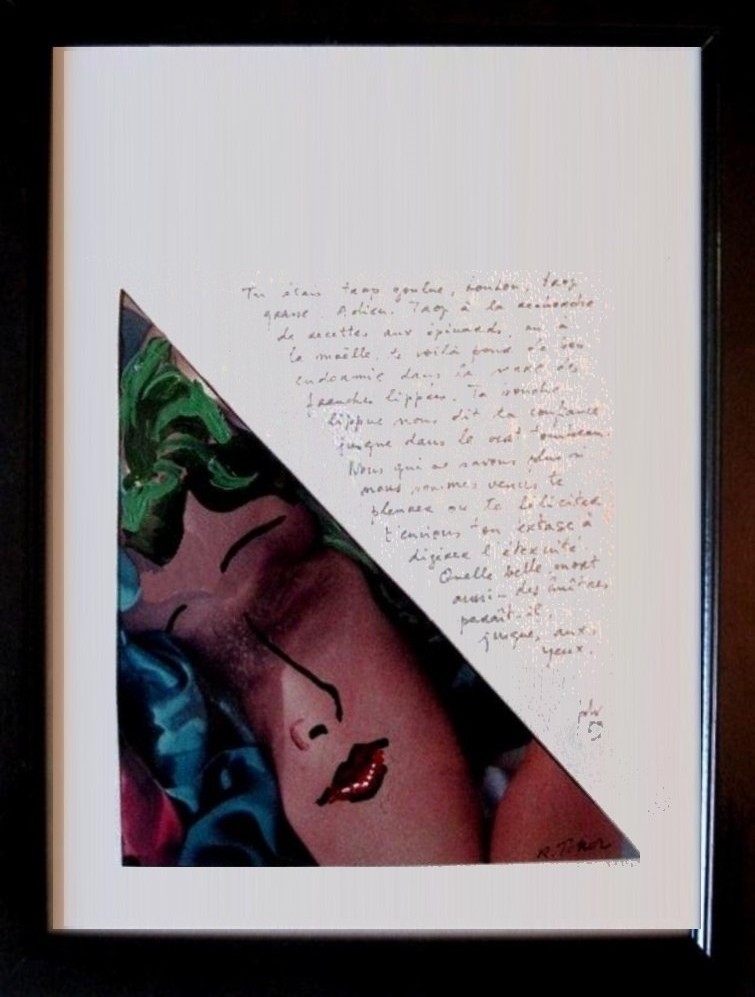 Tu étais trop goulue, trop
grasse. Adieu. Trop à la recherche
de recettes aux épinards, ou à
la moëlle, te voilà pour de bon
endormie dans la des
lippues. Ta
lippue nous dit ta confiance
jusque dans le tombeau.
Nous qui ne savons plus si
nous sommes venus te
pleurer ou te féliciter
t'envions ton extase à
digérer l'éternité.
Quelle belle mort
aussi - des huîtres
paraît-il,
jusque, aux
yeux.
R. Tokor